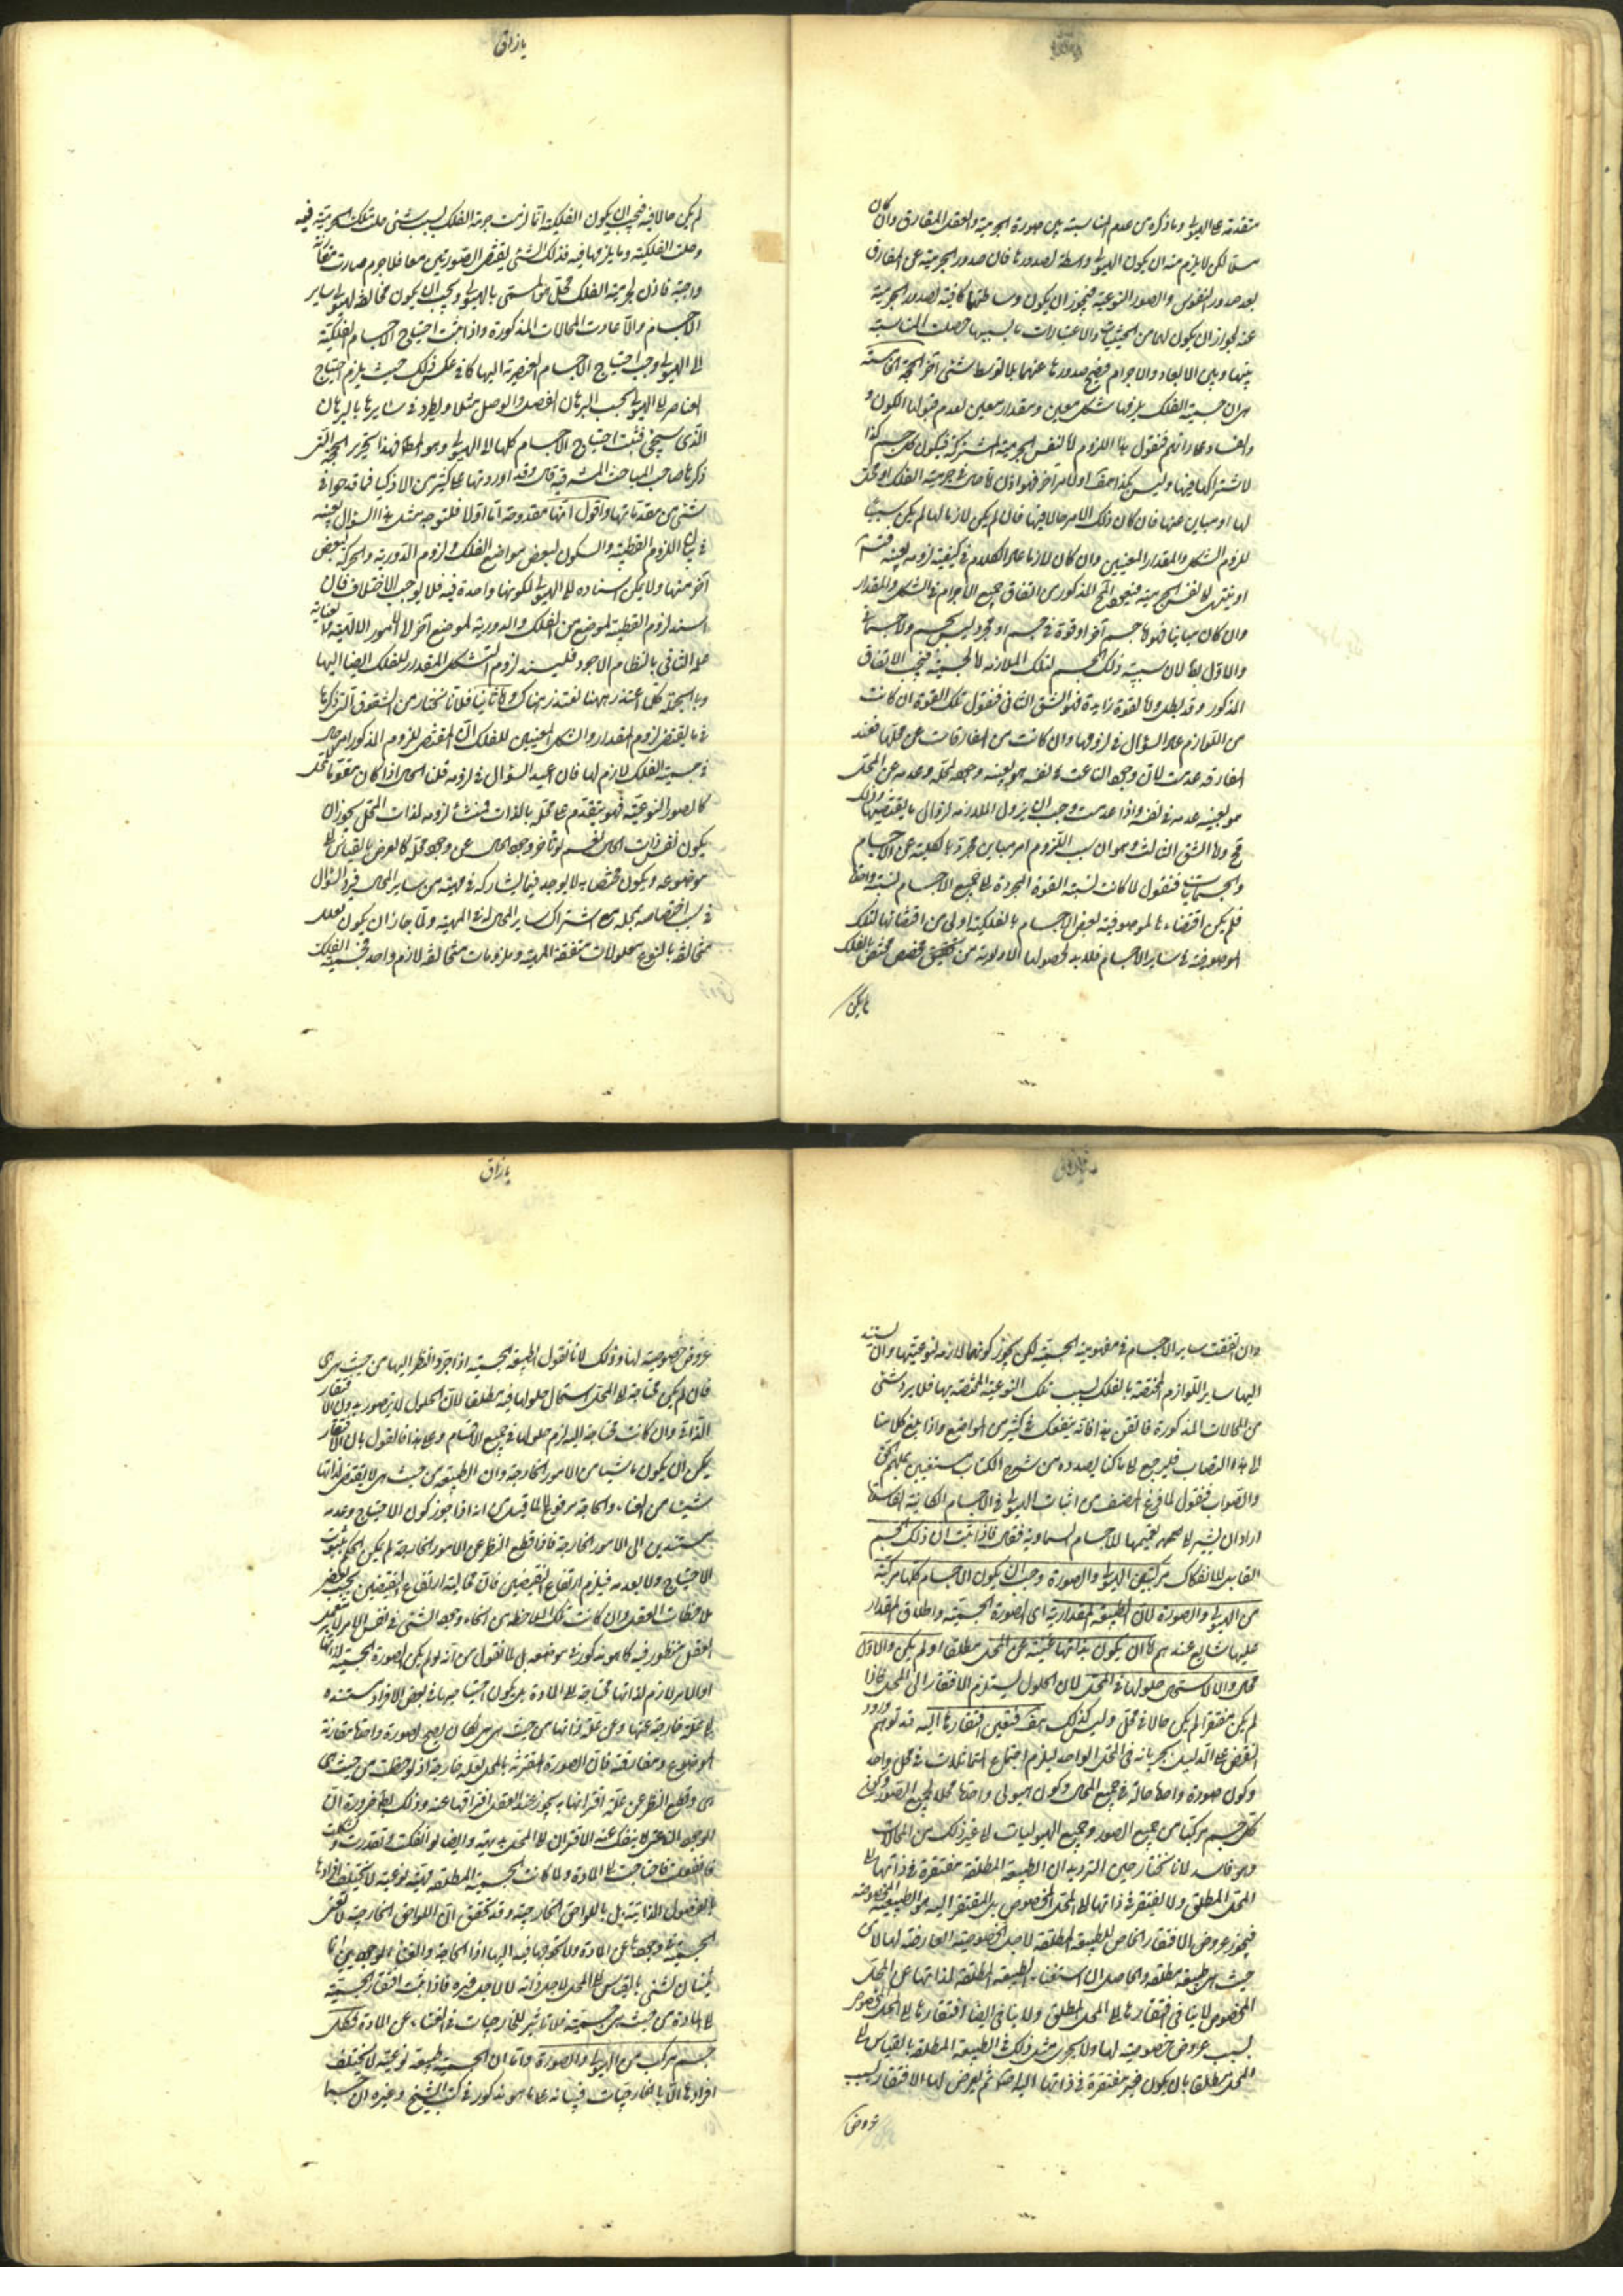 متقدمة على الهيولى وما ذكره من عدم المناسبة بين صورة الجرمية والعقل المفارق وان كان
مسلما لكن لا يلزم منه ان يكون الهيولى واسطة لصدورها فان صدور الجرمية عن المفارق
بعد صدور النفوس والصور النوعية فيجوز ان يكون وساطتها كافية لصدور الجرمية
عنه لجواز ان يكون لها من الحيثيات والاعتبارات ما بسببها حصلت المناسبة
بينها وبين الابعاد والاجرام فيصح صدورها عنهما بلا توسط شئ آخر الحجة الخامسة
هى ان جسمية الفلك يلزمها شكل معين ومقدار معين لعدم قبولها الكون و
الفساد على رأيهم فنقول هذا اللزوم اما لنفس الجرمية المشتركة فيكون كل جسم كذا
لاشتراكها فيها وليس كذا هف او لامر آخر فهو اذن اما حال فى جرمية الفلك او محل
لها او مباين عنها فان كان ذلك الامر حالا فيها فان لم يكن لازما لها لم يكن سببا
للزوم الشكل والمقدار المعينين وان كان لازما عاد الكلام فى كيفية لزومه بعينه
او ينتهى الى نفس الجرمية فيعود المح المذكور من اتفاق جميع الاجرام فى الشكل والمقدار
وان كان مباينا فهو اما جسم آخر او قوة فى جسم او مجرد ليس بجسم ولا جسمانى
والاول بط لان سببية ذلك الجسم لتلك الملازمة اما لجسميته فيجب الاتفاق
المذكور وقد بطل واما لقوة زايدة فهو الشق الثانى فنقول تلك القوة ان كانت
من اللوازم عاد السؤال فى لزومها وان كانت من المفارقات عن محلها فعند
المفارقة عدمت لان وجود الناعت فى نفسه هو بعينه وجوده لمحله وعدمه عن المحل
هو بعينه عدمه فى نفسه واذا عدمت وجب ان يزول الملازمة لزوال ما يقتضيها وذلك
مح واما الشق الثالث وهو ان سبب اللزوم امر مباين مجرد بالكلية عن الاجسام
والجسمانيات فنقول لما كانت نسبة القوة المجردة الى جميع الاجسام نسبة واحدة
فلم يكن اقتضاءها لموصوفية بعض الاجسام بالفلكية اولى من اقتضائها لتلك
الموصوفية فى ساير الاجسام فلابد لحصول الاولوية من مخصص مختص بالفلك
ما يكن
يازاق
لم يكن حالا فيه فيجب ان يكون الفلكية انما لزمت جرمية الفلك بسبب شئ حلت تلك الجرمية فيه
وحلت الفلكية وما يلزمها فيه فذلك الشئ يقتضى الصورتين معا فلا جرم صارت مقارنة
واجبة فاذن لجرمية الفلك محل هو المسمى بالهيولى ويجب ان يكون مخالفة لهيولى ساير
الاجسام والا عادت المحالات المذكورة واذا ثبت احتياج الاجسام الفلكية
الى الهيولى وجب احتياج الاجسام العنصرية اليها كما فى عكس ذلك حيث يلزم احتياج
العناصر الى الهيولى بحسب البرهان الفصل والوصل مثلا ويطرد فى سايرها بالبرهان
الذى سيجئ فثبت احتياج الاجسام كلها الى الهيولى وهو المط فهذا تحرير الحجة التى
ذكرها صاحب المباحث المشرقية قال وقد اوردتها على كثير من الاذكيا فما قدحوا فى
شئ من مقدماتها واقول انها مقدوحة اما اولا فلتوجه مثل هذا السؤال بعينه
فى بيان لزوم القطبية والسكون لبعض مواضع الفلك ولزوم الدورية والحركة لبعض
آخر منها ولا يمكن اسناده الى الهيولى لكونها واحدة فيه فلا يوجب الاختلاف فان
اسند لزوم القطبية لموضع من الفلك والدورية لموضع آخر الى الامور الالهية
بالنظام الاجود فليسند لزوم الشكل والمقدار للفلك ايضا اليها
وبالجملة كلما اعتذر ههنا نعتذر هناك واما ثانيا فلانا نختار من الشقوق التى ذكرها
فيما يقتضى لزوم المقدار والشكل المعينين للفلك ان المقتضى للزوم المذكور امر حال
فى جسمية الفلك لازم لها فان اعيد السؤال فى لزومه قلنا الحال اذا كان مقوما لمحله
كالصور النوعية فهو يتقدم على محله بالذات فمنشأ لزومه لذات المحل يجوز ان
يكون نفس ذات الحال نعم لو تأخر وجود الحال عن وجود محله كالعرض بالقياس الى
موضوعه ويكون مختصا به لا يوجد فيما يشاركه فى مهيته من ساير المحال فيرد السؤال
فى سبب اختصاصه بمحله مع اشتراك ساير المحال له فى المهية ولما جاز ان يكون لعلل
متخالفة بالنوع معلولات متفقة المهية وملزومات متخالفة لازم واحد فجسمية الفلك
وان اتفقت ساير الاجسام فى مفهومية الجسمية لكن يجوز كونها لازمة لنوعيتها وان يستند
اليها ساير اللوازم المختصة بالفلك بسبب تلك النوعية المختصة بها فلا يرد شئ
من المحالات المذكورة فاتقن هذا فانه ينفعك فى كثير من المواضع واذا بلغ كلامنا
الى هذا النصاب فليرجع الى ما كنا بصدده من شرح الكتاب مستعينين بملهم الحق
والصواب فنقول لما فرغ المصنف من اثبات الهيولى فى الاجسام القابلة للانفكاك
اراد ان يشير الى تعميمها للاجسام السماوية فقال فاذا ثبت ان ذلك الجسم
القابل للانفكاك مركب من الهيولى والصورة وجب ان يكون الاجسام كلها مركبة
من الهيولى والصورة لان الطبيعة المقدارية اى الصورة الجسمية واطلاق المقدار
عليها شايع عندهم اما ان يكون بذاتها غنية عن المحل مطلقا او لم يكن والاول
محال والا لاستحال حلولها فى المحل لان الحلول يستلزم الافتقار الى المحل فاذا
لم يكن مفتقرا لم يكن حالا فى محل وليس كذلك هف فتعين افتقارها اليه قد توهم ورود
النقض على الدليل بجريانه فى المحل الواحد ليلزم اجتماع المتماثلات فى محل واحد
وكون صورة واحدة حالة فى جميع المحال وكون هيولى واحدة محلا لجميع الصور وكون
كل جسم مركبا من جميع الصور وجميع الهيوليات الى غير ذلك من المحالات
وهو فاسد لانا نختار حين الترديد ان الطبيعة المطلقة مفتقرة فى ذاتها الى
المحل المطلق ولا يفتقر فى ذاتها الى المحل المخصوص بل المفتقر اليه هو الطبيعة المخصوصة
فيجوز عروض الافتقار الخاص للطبيعة المطلقة لاجل الخصوصية العارضة لها لا من
حيث هى طبيعة مطلقة والحاصل ان استغناء الطبيعة المطلقة لذاتها عن المحل
المخصوص لا ينافى افتقارها الى المحل المطلق ولا ينافى ايضا افتقارها الى المحل المخصوص
بسبب عروض خصوصية لها ولا يجرى مثل ذلك فى الطبيعة المطلقة بالقياس الى
المحل مطلقا بان يكون غير مفتقرة فى ذاتها اليه اصلا ثم يعرض لها الافتقار بسبب
عروض
يازاق
عروض خصوصية لها وذلك لانا نقول الطبيعة الجسمية اذا جرد النظر اليها من حيث هى هى
فان لم يكن محتاجة الى المحل استحال حلولها فيه مطلقا لان الحلول لا يتصور بدون الافتقار
الذاتى وان كانت محتاجة اليه لزم حلولها فى جميع الاجسام وعلى هذا فالقول بان الافتقار
يمكن ان يكون ناشيا من الامور الخارجة وان الطبيعة من حيث هى لا يقتضى لذاتها
شيئا من الغناء والحاجة مرفوع لما قيل من انه اذا جوز كون الاحتياج وعدمه
مستندين الى الامور الخارجة فاذا قطع النظر عن الامور الخارجة لم يكن الحكم بثبوت
الاحتياج ولا بعدمه فيلزم ارتفاع النقيضين فان قابلية ارتفاع النقيضين بحسب بعض
ملاحظات العقل وان كانت تلك الملاحظة من انحاء وجود الشئ فى نفس الامر لا بتعمل
العقل منظور فيه كما هو مذكور فى موضعه بل لما نقول من انه لو لم يكن الصورة الجسمية لذاتها
او لامر لازم لذاتها محتاجة الى المادة بل يكون احتياجها فى بعض الافراد مستنده
الى علة خارجة عنها وعن علة ذاتها من حيث هى هى لكان يصح لصورة واحدة مقارنة
الموضوع ومفارقته فان الصورة المقترنة بالمحل لعلة خارجة اذا لوحظت من حيث هى
هى وقطع النظر عن علة اقترانها به يجوز عند العقل افتراقها عنه وذلك بط ضرورة ان
الوجود الناعتى لا ينفك عنه الاقتران الى المحل بديهة وايضا لو انفكت وتقدرت وتشكلت
فانفعلت فاحتاجت الى المادة ولما كانت الجسمية المطلقة مهية نوعية لا تختلف افرادها
بالفصول الذاتية بل باللواحق الخارجية وقد تحقق ان اللواحق الخارجية لا تغنى
الجسمية فى وجودها عن المادة ولا تحوجها فيه اليها اذا الحاجة والغنا الوجوديين انما
يثبتان لشئ بالقياس الى المحل لاجل ذاته لا لاجل غيره فاذا ثبت افتقار الجسمية
الى المادة من حيث هى جسمية فلا تأثير للخارجيات فى الغناء عن المادة فكل
جسم مركب من الهيولى والصورة واما ان الجسمية طبيعة نوعية لا يختلف
افرادها الا بالخارجيات فبيانه على ما هو مذكور فى كتب الشيخ وغيره ان جسما